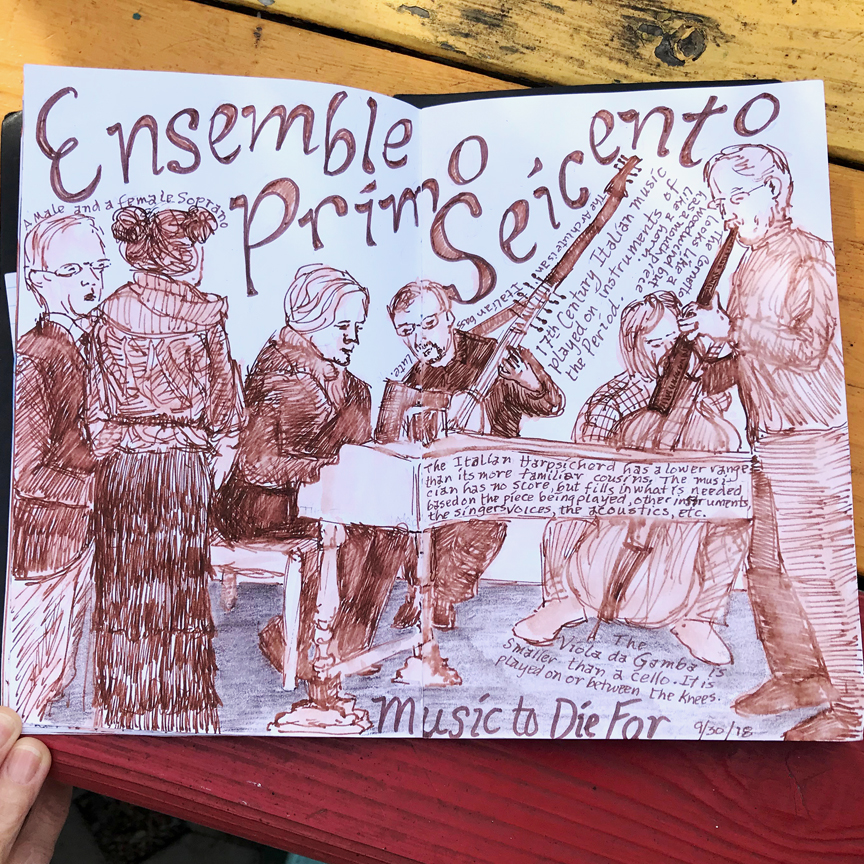 Ensemble
Primo
Seicento
A Male and a female Soprano
The Archlute is an
Italian bass
Lute.
17th Century Italian music
played on instruments of
the Period.
The Cornetto
Looks Like a
woodwind but
has a mouthpiece
like a horn.
The Italian Harpsichord has a lower range
than its more familiar cousins. The musi-
cian has no score, but fills in what is needed
based on the piece being played, other instruments,
the singers voices, the acoustics, etc.
The
Viola da Gamba is
smaller than a cello. It is
played on or between the knees.
Music to Die For
9/30/18